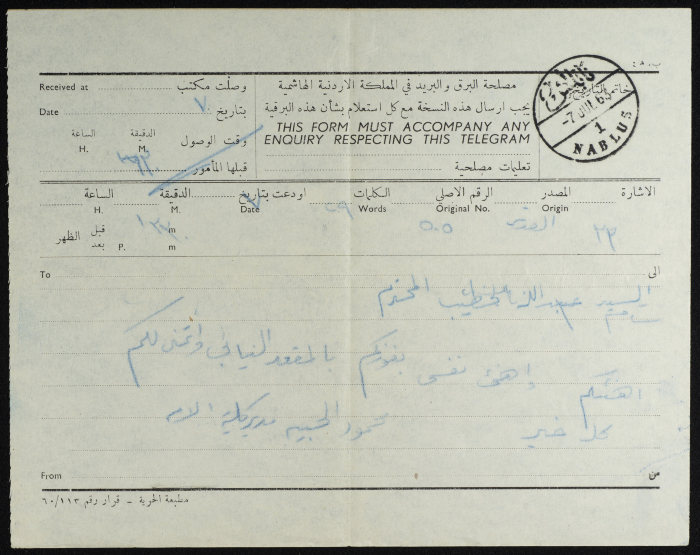 ب. هـ :
Received at وصلت مكتب
Date بتاريخ ٧
الساعة الدقيقة وقت الوصول
H. M.
قبلها المأمور
مصلحة البرق والبريد في المملكة الاردنية الهاشمية
يجب ارسال هذه النسخة مع كل استعلام بشأن هذه البرقية
THIS FORM MUST ACCOMPANY ANY
ENQUIRY RESPECTING THIS TELEGRAM
تعليمات مصلحية
خاتم التاريخ
نابلس
-7 JUL 63
1
NABLUS
الاشارة المصدر الرقم الاصلي الكلمات اودعت بتاريخ الدقيقة الساعة
Origin Original No. Words Date M. H.
٢٣ القدس ٥٠٥ ٧
الظهر قبل بعد m P. m
To الى
السيد عبد الخطيب المحترم
اهنئكم واهنئ نفسي بفوزكم بالمقعد النيابي واتمنى لكم
كل خير محمود مدير كلية
From من
مطبعة الحرية - قرار رقم ٦٠/١١٣